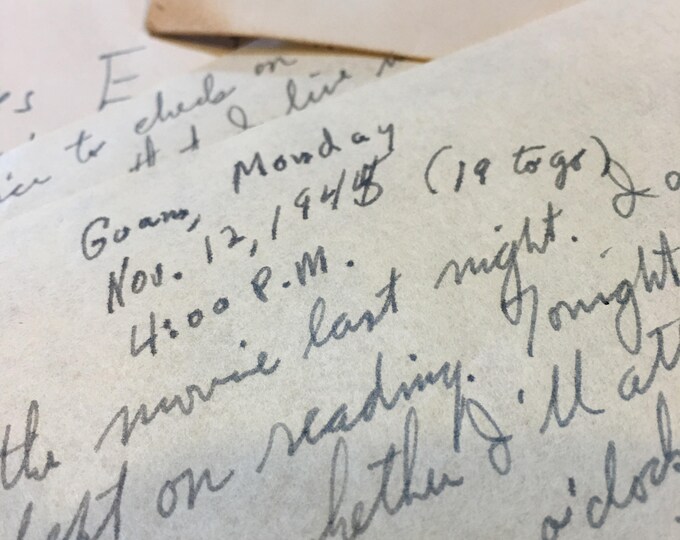 E
to check on
I live
Guam, Monday
Nov. 12, 1945 (19 to go)
4:00 P.M.
the movie last night. I
kept on reading. Tonight
whether I'll
o'clock